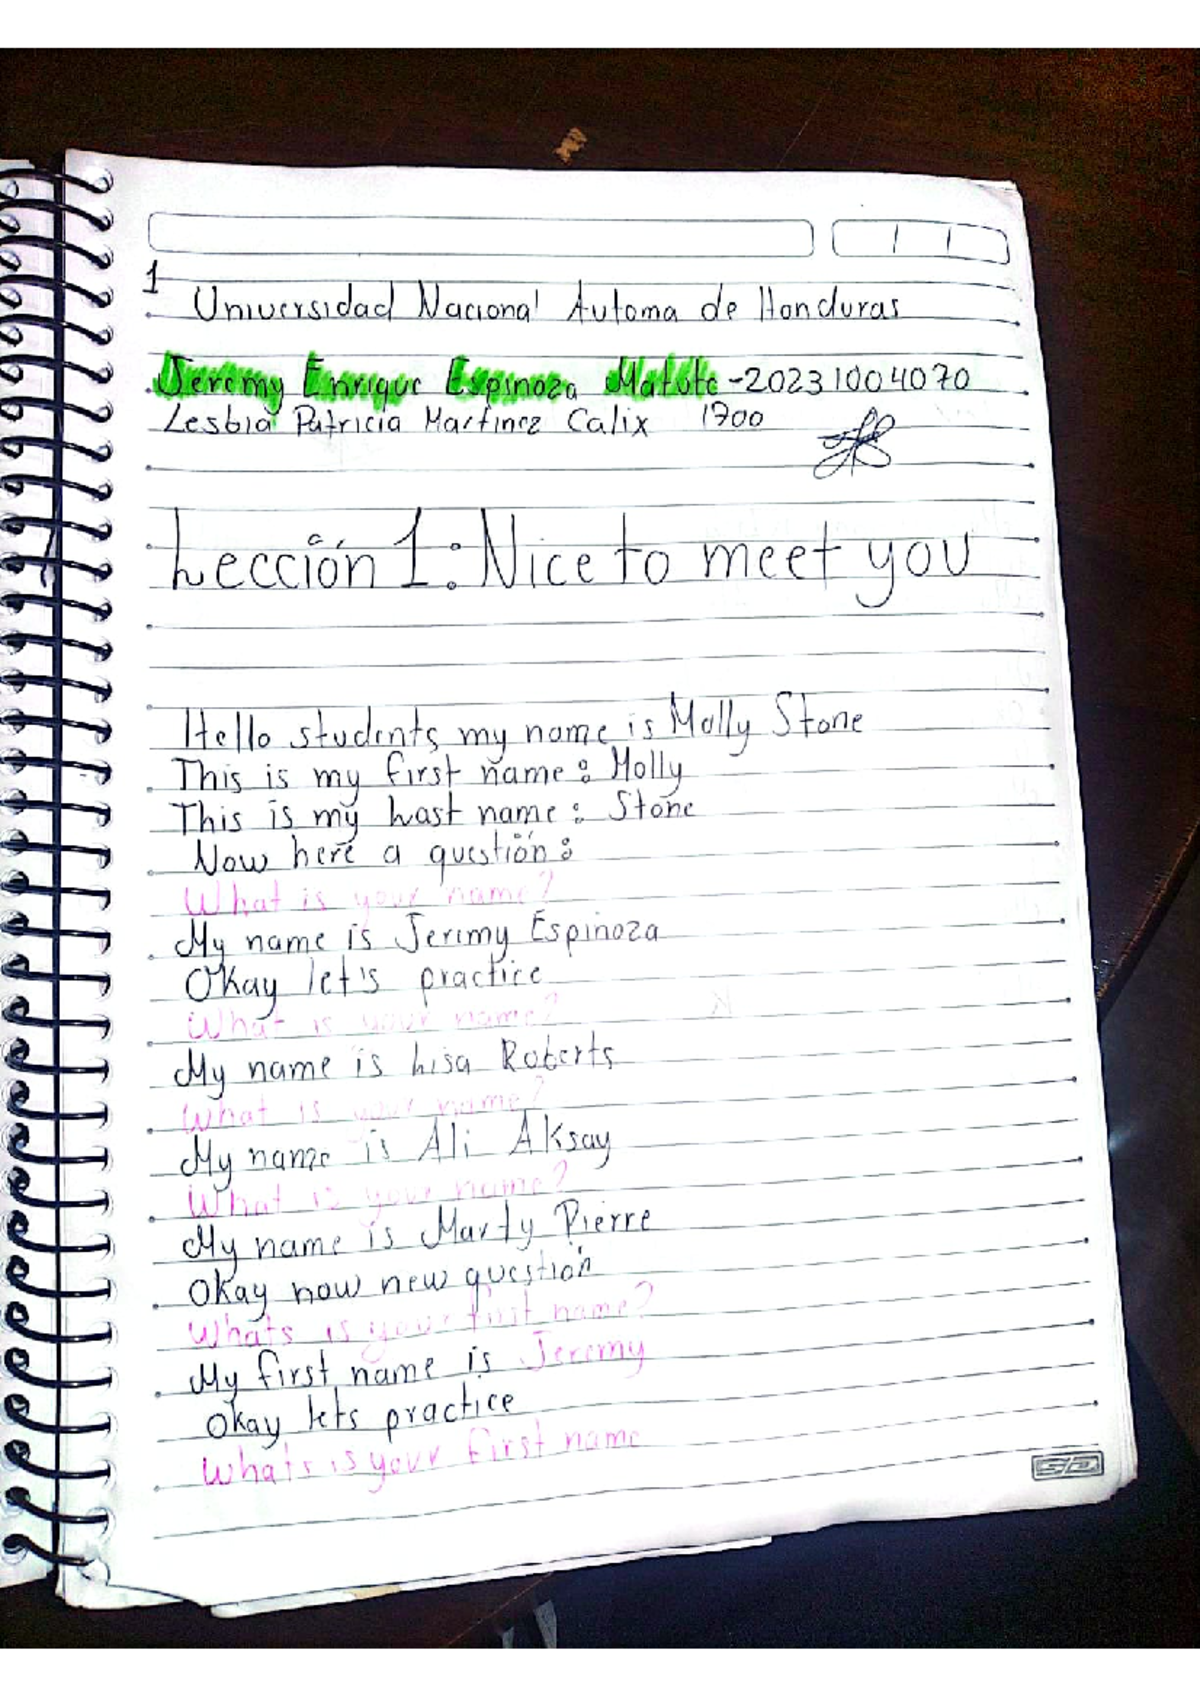 1
Universidad Nacional Automa de Honduras
Jeremy Enrique Espinoza Matute -20231004070
Lesbia Patricia Martinez Calix 1700
Lección 1: Nice to meet you
Hello students my name is Molly Stone
This is my first name: Molly
This is my Last name: Stone
Now here a questión:
What is your name?
My name is Jeremy Espinoza
Okay let's practice
What is your name?
My name is Lisa Roberts
What is your name?
My name is Ali Aksay
What is your name?
My name is Marty Pierre
Okay now new question
Whats is your first name?
My first name is Jeremy
Okay lets practice
Whats is your first name